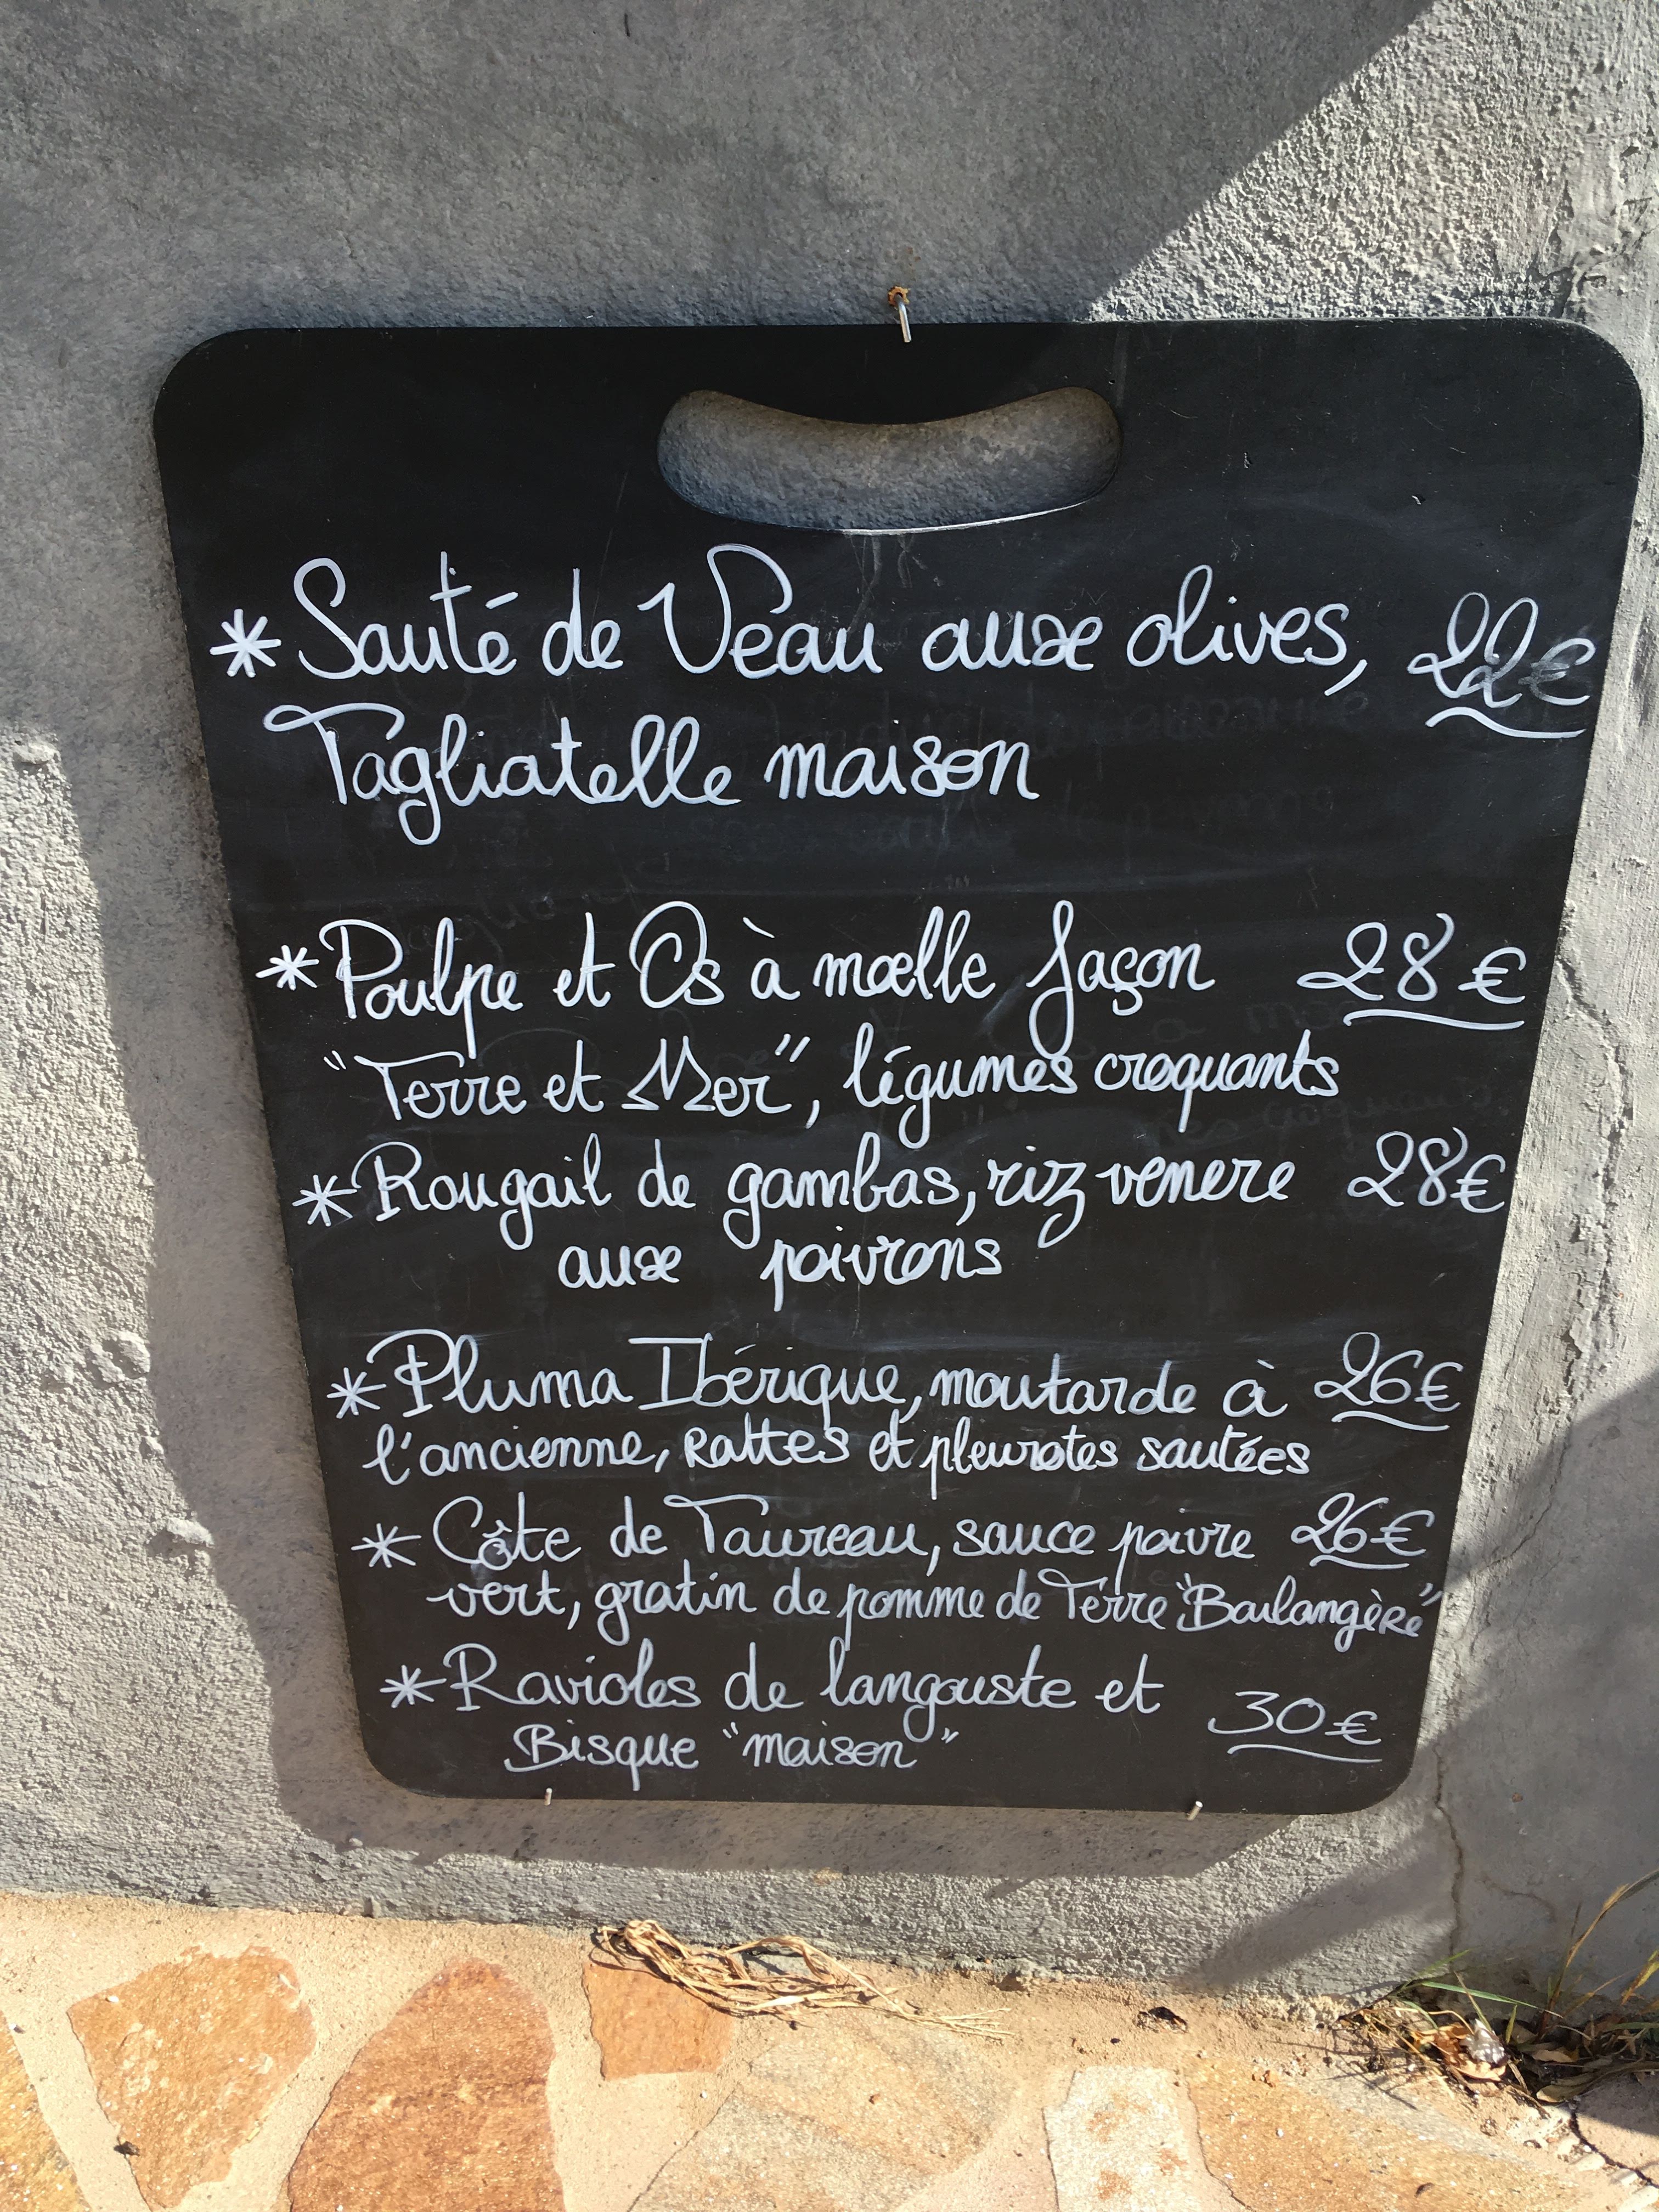 * Sauté de Veau aux olives, 22€
Tagliatelle maison
* Poulpe et Os à moelle façon 28€
"Terre et Mer", légumes croquants
* Rougail de gambas, riz venere 28€
aux poivrons
* Pluma Ibérique, moutarde à 26€
l'ancienne, Rattes et pleurotes sautées
* Côte de Taureau, sauce poivre 26€
vert, gratin de pomme de Terre "Boulangère"
* Ravioles de langouste et 30€
Bisque "maison"